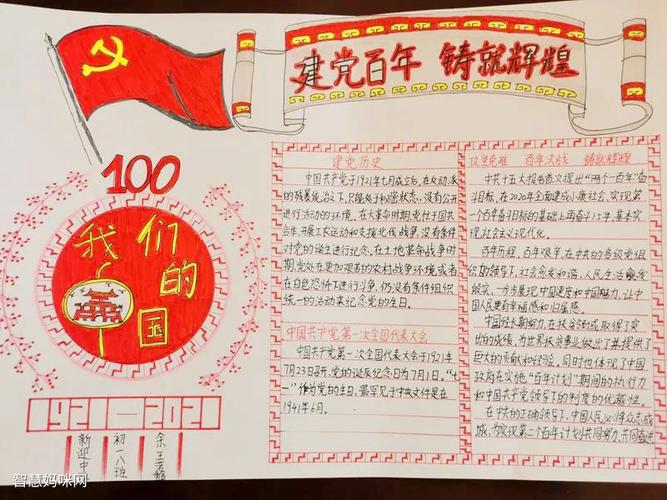 建党百年 铸就辉煌
100
我们的国
1921—2021
新迎中
初一八班
余
智慧妈咪网
建党历史
中国共产党于1921年七月成立后,在反动派
的残暴统治之下,只能处于秘密状态,没有公开
进行活动的环境。在大革命时期,党忙于国共
合作、开展工农运动和支援北伐战争,没有条件
对党的诞生进行纪念。在土地革命战争时
期,党处在更加艰苦的农村战争环境或者
在白色恐怖下进行斗争,仍没有条件组织
统一的活动来纪念党的生日。
中国共产党第一次全国代表大会
中国共产党第一次全国代表大会于1921年
7月23日召开,党的诞辰纪念日为7月1日。“七
一”作为党的生日,最早见于中央文件是在
1941年6月。
攻坚克难 百年决战 铸就辉煌
中共十五大报告首次提出“两个一百年”奋
斗目标,在2020年全面建成小康社会,实现第
一个百年奋斗目标的基础上再奋斗15年,基本实
现社会主义现代化。
百年历程,百年艰辛,在中共的各级党组
织的领导下,社会愈发和谐,人民生活愈发
殷实,一步步展现中国速度和中国魅力,让中
国人民更有幸福感和归属感。
中国经长期努力,在扶贫领域取得了突
出的成绩,为世界扶贫事业做出了并提供了
巨大的贡献和经验。同时也体现了中国
政府在实施“百年计划”期间的执行力
和中国共产党领导下的制度的优越性。
在中共的正确领导下,中国人民必将众志成
城,为实现第二个百年计划共同努力,共同奋进